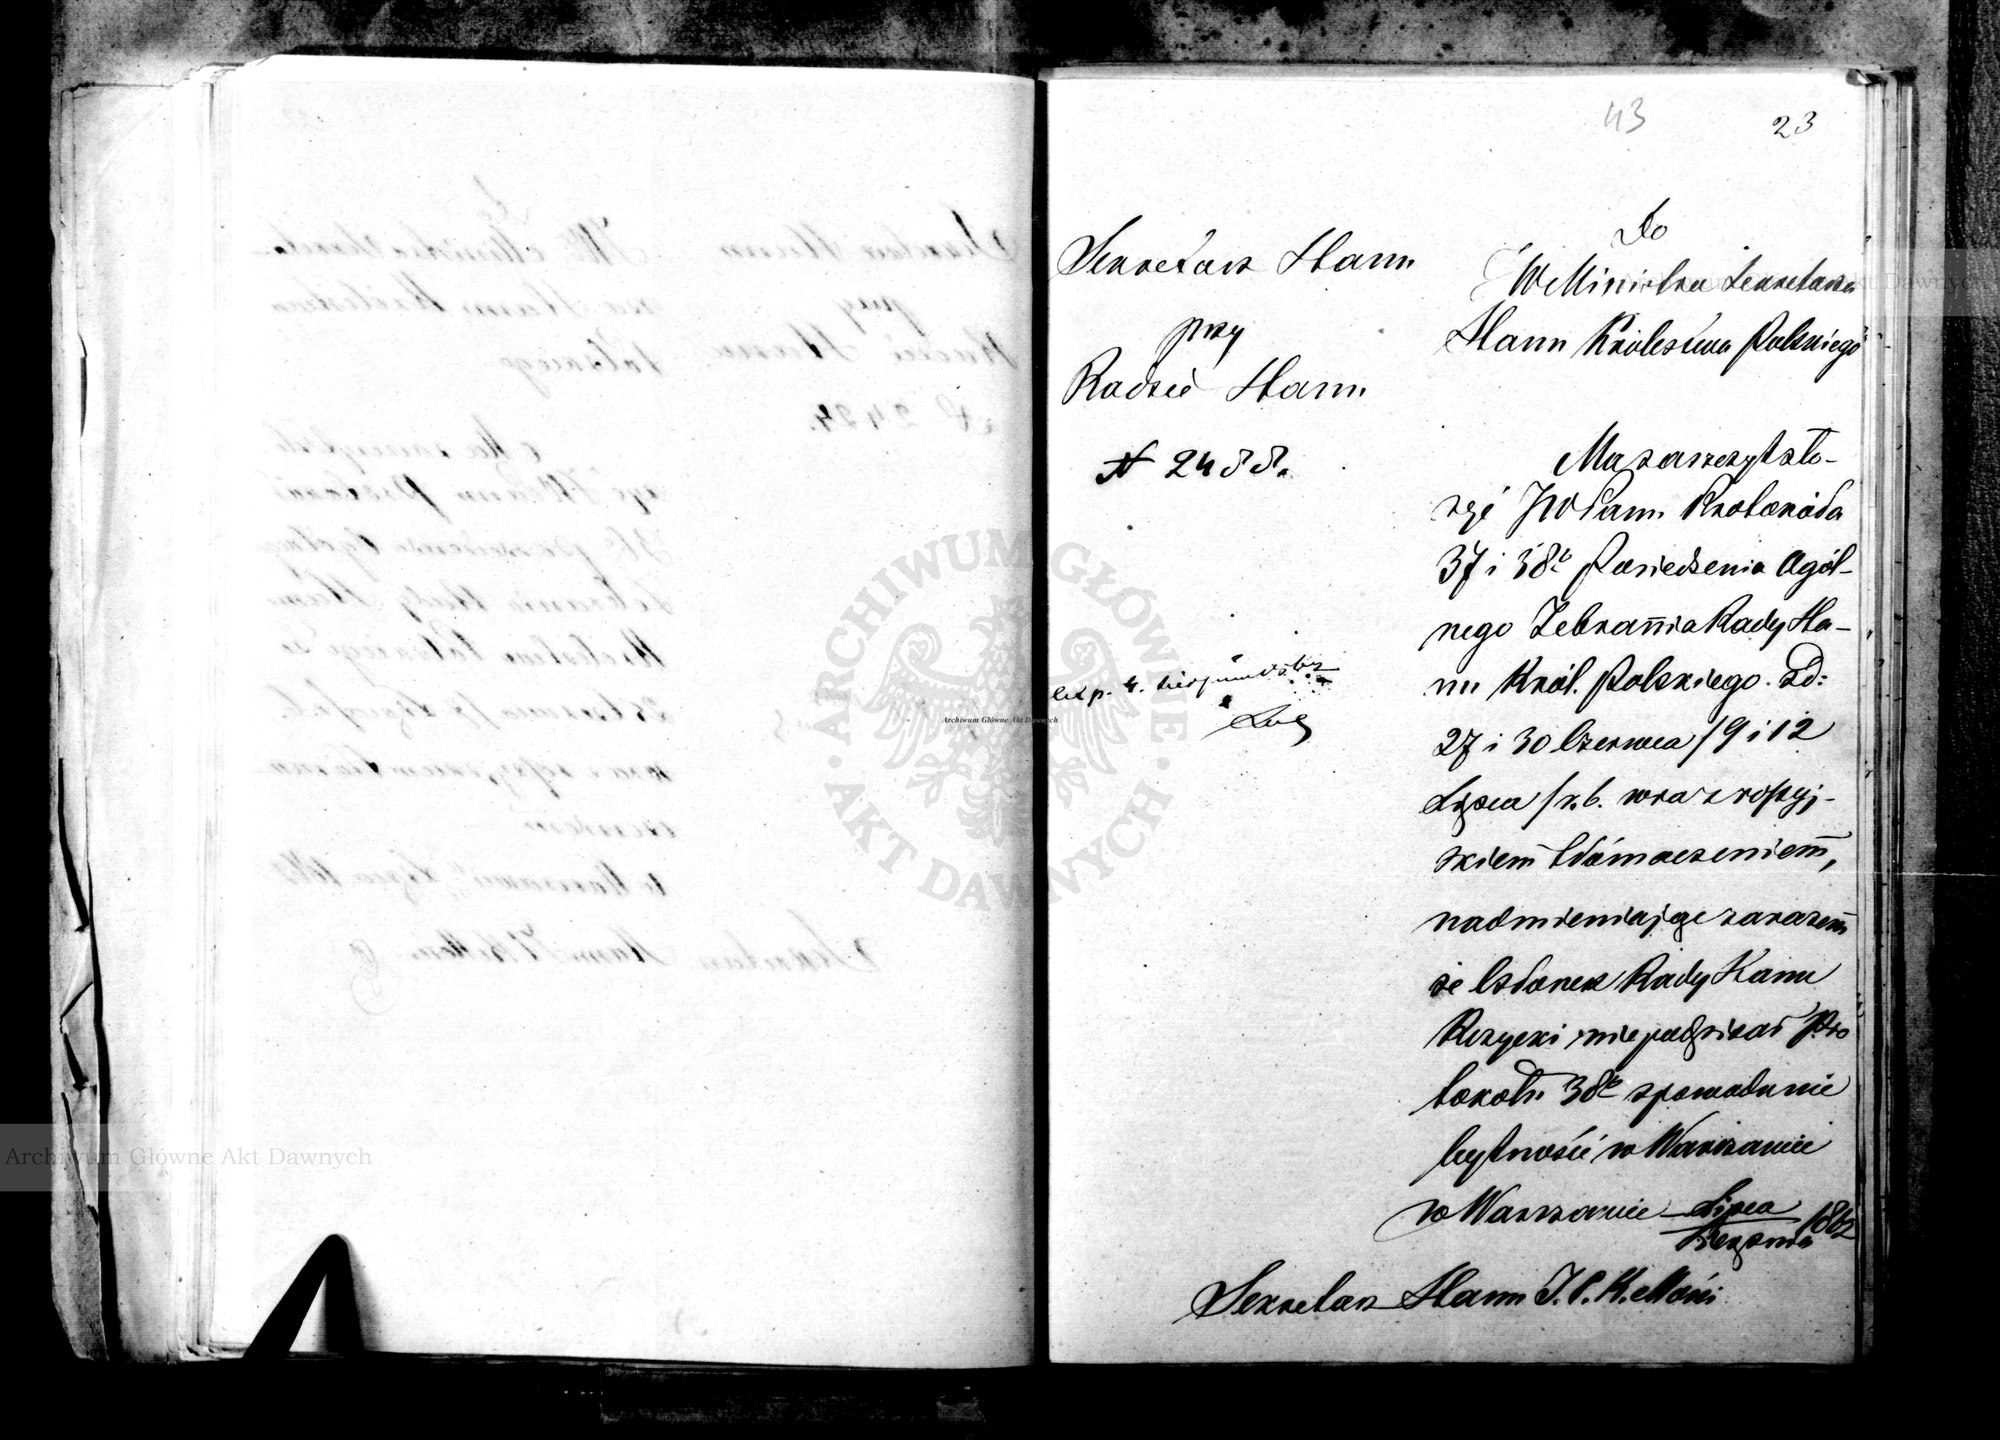 43
23
Sekretarz Stanu
przy
Radzie Stanu
N 2488.
Do
JW Ministra Sekretarza
Stanu Królestwa Polskiego
Mam zaszczyt zło-
żyć JW Panu Protokóła
37 i 38e Posiedzenia Ogól-
nego Zebrania Rady Sta-
nu Król. Polskiego. zd:
27 i 30 Czerwca / 9 i 12
Lipca / r. b. wraz z rossyj-
skiem tłómaczeniem,
nadmieniając zarazem
że Członek Rady Stanu
niepodpisał Pro
tokółu 38e z powodu nie
bytności w Warszawie
w Warszawie Lipca
Sierpnia 1862
Sekretarz Stanu J. C. K. Mości
exp. 4. sierpnia
ARCHIWUM GŁÓWNE
AKT DAWNYCH
Archiwum Główne Akt Dawnych
Archiwum Główne Akt Dawnych
Akt Dawnych